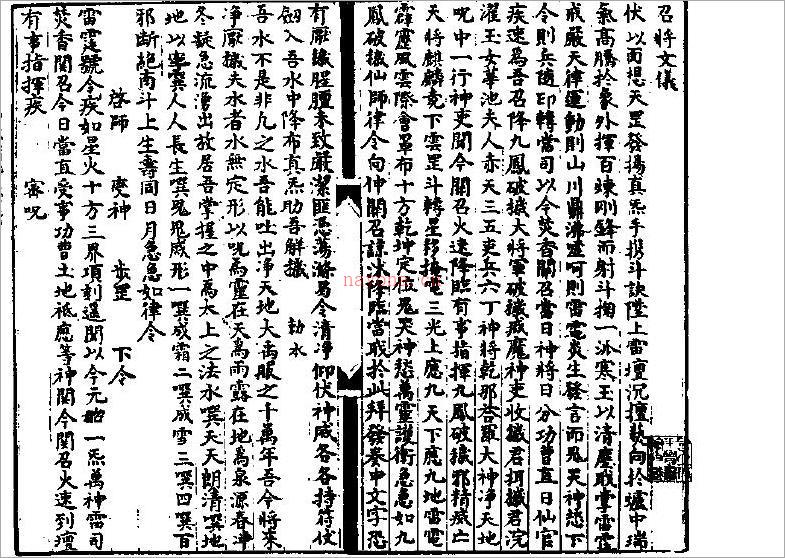 召將文儀
伏以面想天罡發揚真炁手携斗訣陞上雷壇沉擅款向扵爐中瑞
氣高騰扵象外揮百煉剛鋒而射斗掬一泒寒玉以清塵取掌雷霆
戒嚴天律運動則山川鼎沸嘘呵則雷電炎生發言而鬼哭神愁下
令則兵隨印轉當司以今焚香関召當日神將日分功曹直日仙官
疾速為吾召降九鳳破穢大將軍破穢滅魔神吏收穢君捋穢君浣
濯玉女華池夫人赤天三五吏兵六丁神將乾邪荅羅大神净天地
呪中一行神吏聞今関召火速降臨有事指揮九鳳破穢邪精滅亡
天將麒麟竟下雲罡斗轉星移掩電三光上應九天下應九地雷電
霹靂風雲際會罩布十方乾坤定位鬼哭神愁萬靈護衛急急如九
鳳破穢仙師律令向仲関召諒沐降臨當取扵此拜發奏申文字恐
有厭穢腥膻未致嚴潔匪憑蕩滌曷令清净仰伏神威各各持符伏
劒入吾水中降布真炁助吾解穢 勑水
吾水不是非凢之水吾能吐出净天地大禹服之千萬年吾今將來
净厭穢夫水者水無定形以呪為靈在天為雨露在地為泉源春冲
冬凝急流湧出故居吾掌握之中為太上之法水噀天天朗清噀地
地以噀人人長生噀鬼鬼滅形一噀成霜二噀成雪三噀四噀百
邪斷絕南斗上生壽同日月急急如律令
啓師 變神 步罡 下令
雷霆號令疾如星火十方三界項刻選聞以今元始一炁萬神雷司
焚香関召今日當直受事功曹土地祇應等神聞今関召火速到壇
有事指揮疾 密呪
nazong.cn